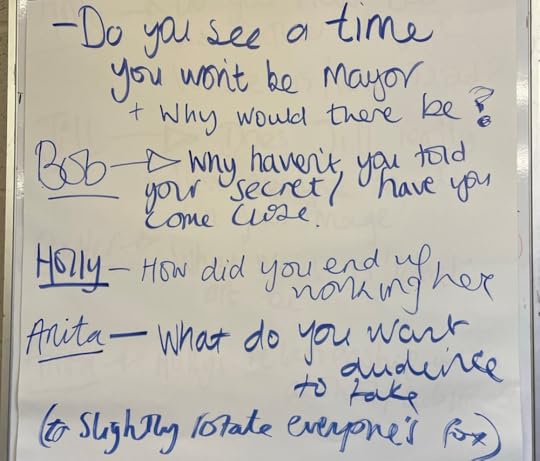 - Do you see a time
you won't be mayor
+ Why would there be?
Bob → Why haven't you told
your secret / have you
come close.
Holly - How did you end up
working her
Anita - What do you want
audience
to take
(to slightly rotate everyone's fox)